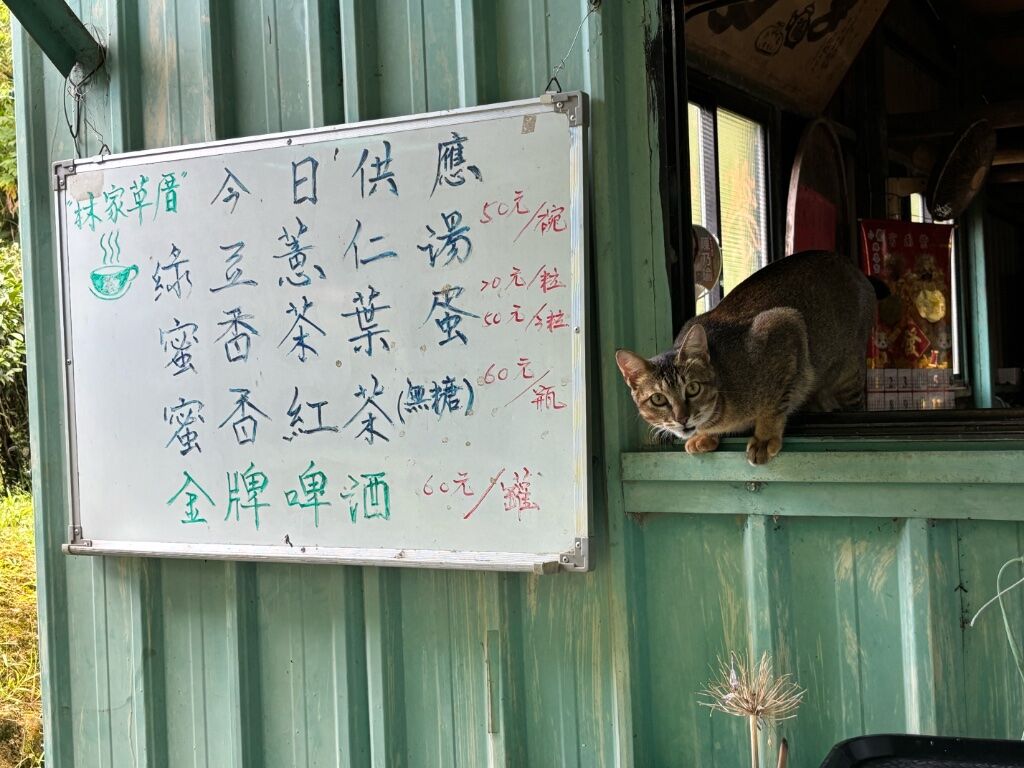 "林家草厝" 今日供應
綠豆薏仁湯 50元/碗
蜜香茶葉蛋 20元/粒
50元/3粒
蜜香紅茶(無糖) 60元/瓶
金牌啤酒 60元/罐